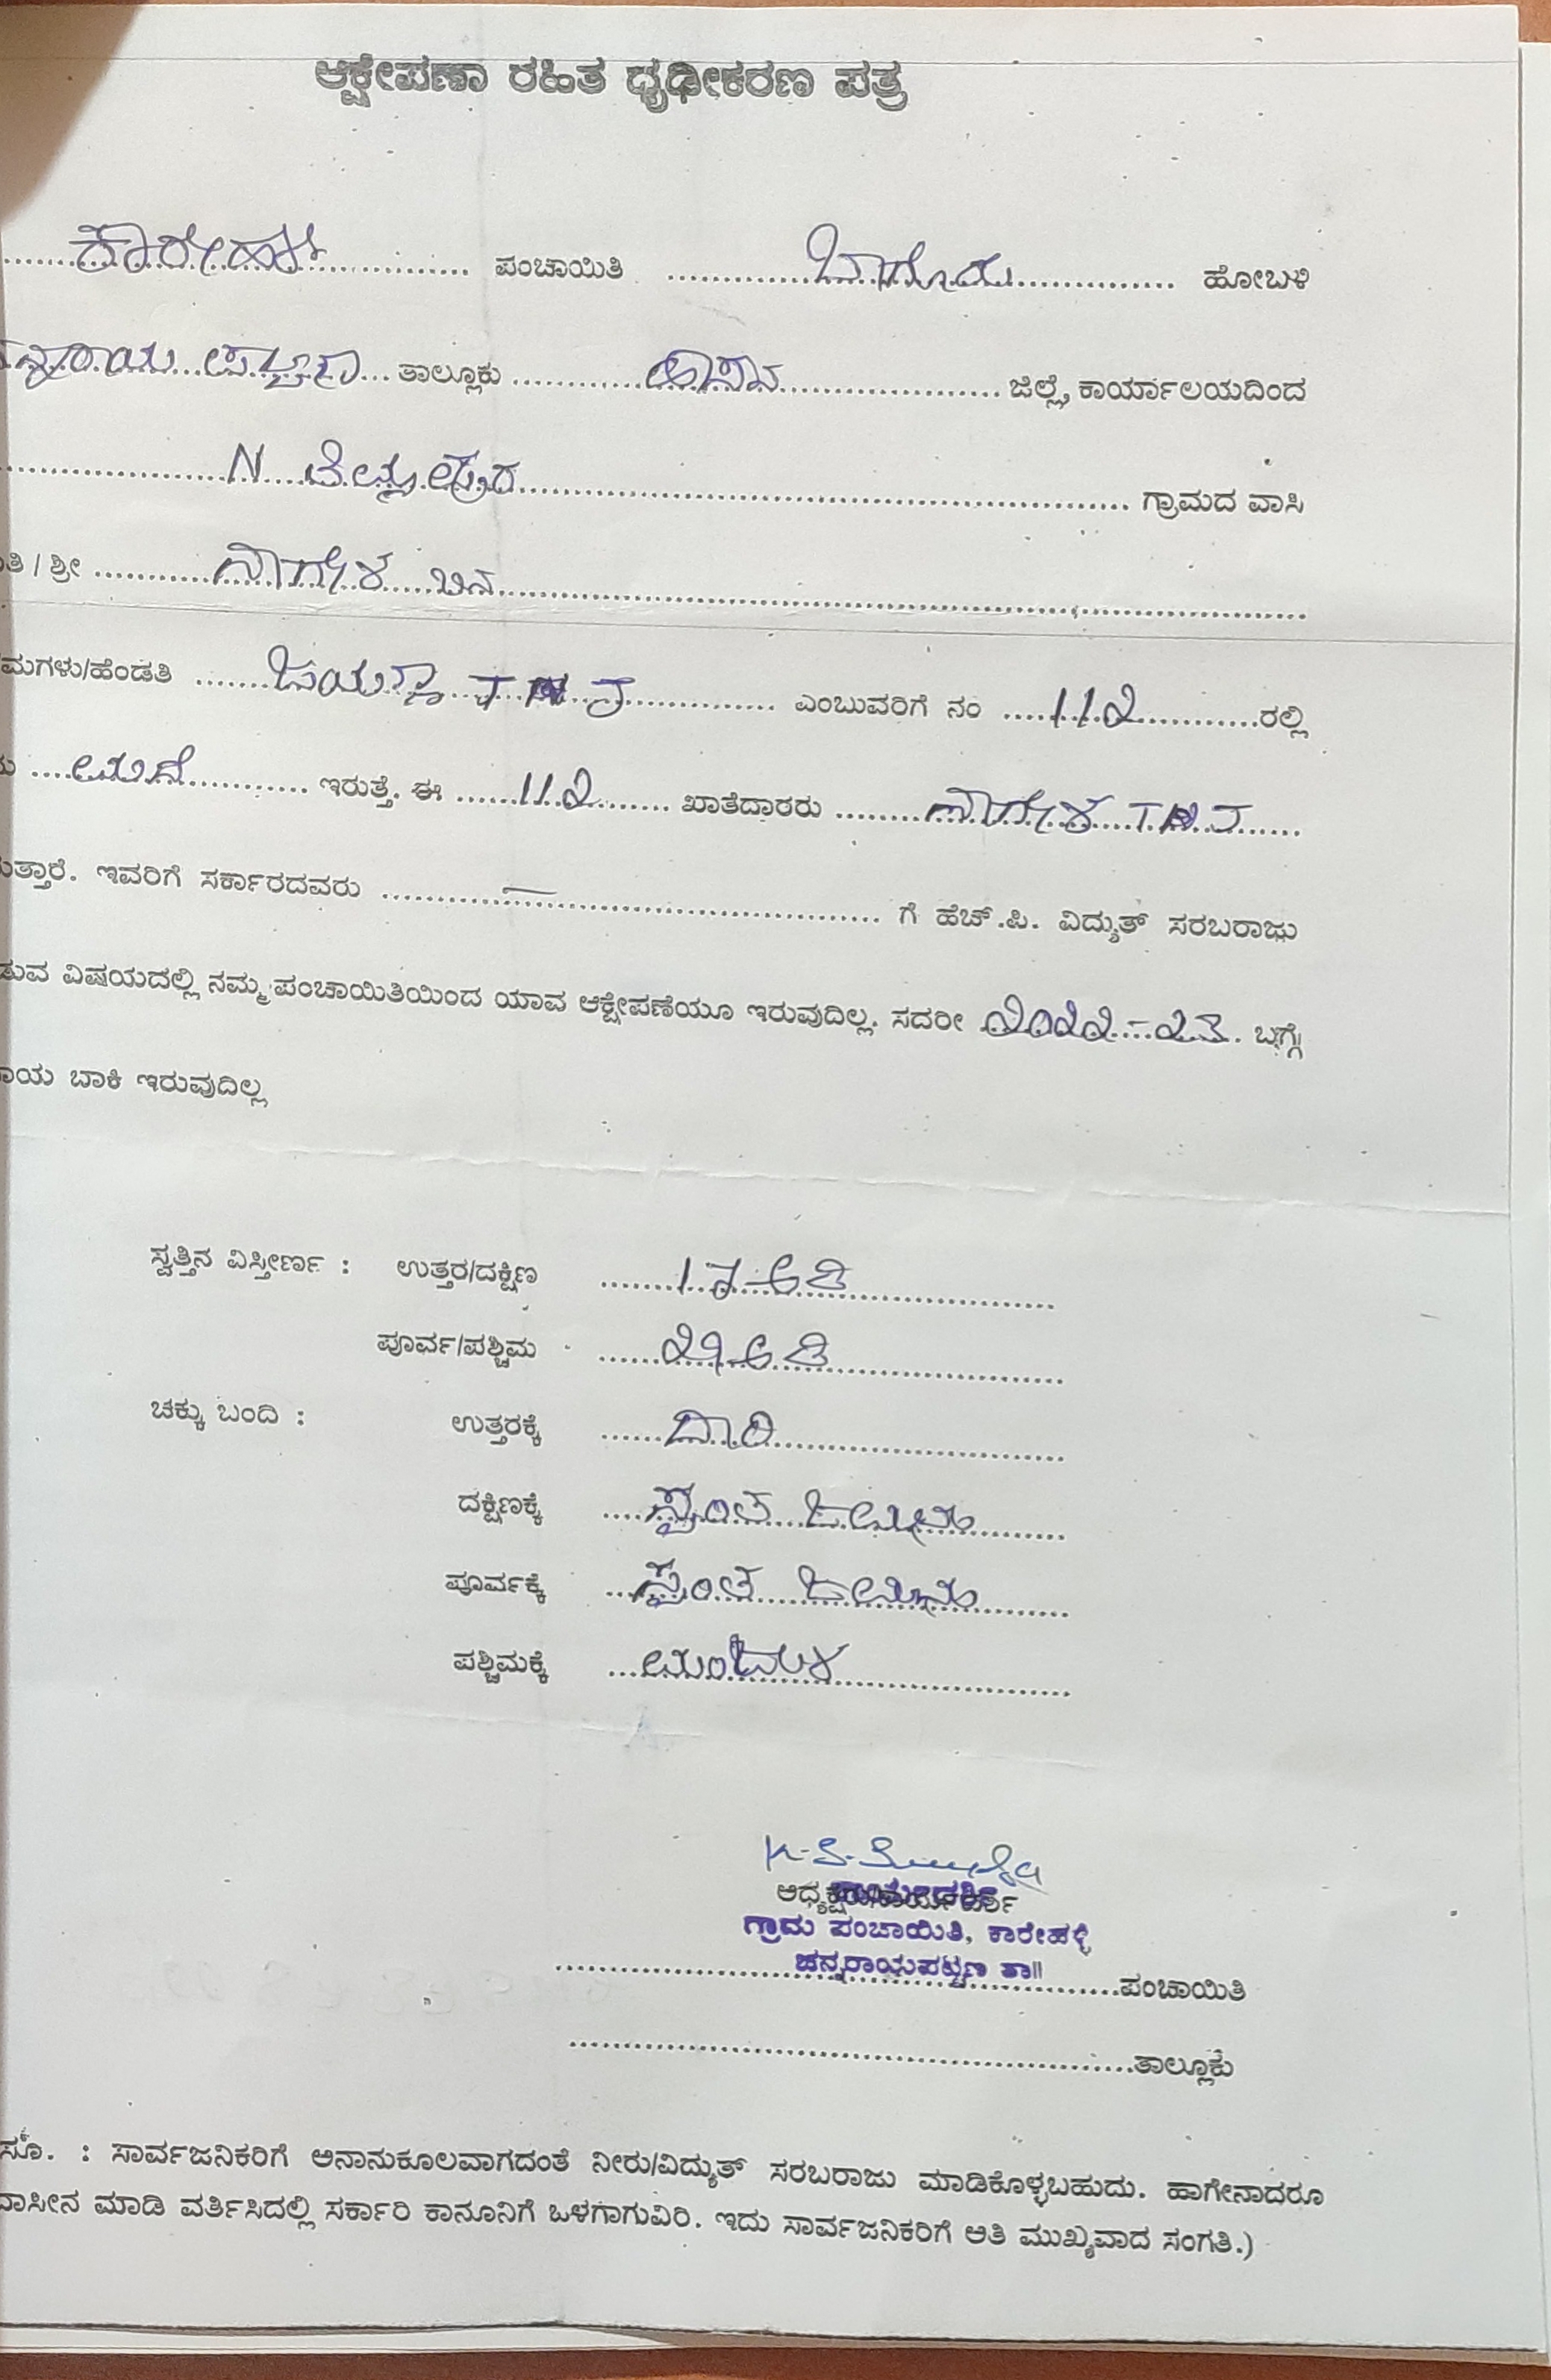 ಆಕ್ಷೇಪಣಾ ರಹಿತ ಧೃಢೀಕರಣ ಪತ್ರ
ಕಾರೇಹಳ್ಳಿ ಪಂಚಾಯಿತಿ ಬಾಗೂರು ಹೋಬಳಿ
ನ್ನರಾಯ ಪಟ್ಟಣ ತಾಲ್ಲೂಕು ಹಾಸನ ಜಿಲ್ಲೆ, ಕಾರ್ಯಾಲಯದಿಂದ
N ಗ್ರಾಮದ ವಾಸಿ
ತಿ / ಶ್ರೀ ನಾಗೇಶ ಬಿನ್
ಮಗಳು/ಹೆಂಡತಿ ಜಯಣ್ಣ ಎಂಬುವರಿಗೆ ನಂ 11೨ ರಲ್ಲಿ
ಮನೆ ಇರುತ್ತೆ. ಈ 11೨ ಖಾತೆದಾರರು ನಾಗೇಶ
ುತ್ತಾರೆ. ಇವರಿಗೆ ಸರ್ಕಾರದವರು — ಗೆ ಹೆಚ್.ಪಿ. ವಿದ್ಯುತ್ ಸರಬರಾಜು
ಡುವ ವಿಷಯದಲ್ಲಿ ನಮ್ಮ ಪಂಚಾಯಿತಿಯಿಂದ ಯಾವ ಆಕ್ಷೇಪಣೆಯೂ ಇರುವುದಿಲ್ಲ. ಸದರೀ ೨೦೨೨-೨೩ ಬಗ್ಗೆ
ಾಯ ಬಾಕಿ ಇರುವುದಿಲ್ಲ
ಸ್ವತ್ತಿನ ವಿಸ್ತೀರ್ಣ : ಉತ್ತರ/ದಕ್ಷಿಣ 1೭ ಅಡಿ
ಪೂರ್ವ/ಪಶ್ಚಿಮ ೨೪ ಅಡಿ
ಚಕ್ಕು ಬಂದಿ : ಉತ್ತರಕ್ಕೆ ದಾರಿ
ದಕ್ಷಿಣಕ್ಕೆ ಸ್ವಂತ ಜಮೀನು
ಪೂರ್ವಕ್ಕೆ ಸ್ವಂತ ಜಮೀನು
ಪಶ್ಚಿಮಕ್ಕೆ
ಅಧ್ಯಕ್ಷರು/ಕಾರ್ಯದರ್ಶಿ
ಗ್ರಾಮ ಪಂಚಾಯಿತಿ, ಕಾರೇಹಳ್ಳಿ
ಚನ್ನರಾಯಪಟ್ಟಣ ತಾ||
ಪಂಚಾಯಿತಿ
ತಾಲ್ಲೂಕು
ಸೂ. : ಸಾರ್ವಜನಿಕರಿಗೆ ಅನಾನುಕೂಲವಾಗದಂತೆ ನೀರು/ವಿದ್ಯುತ್ ಸರಬರಾಜು ಮಾಡಿಕೊಳ್ಳಬಹುದು. ಹಾಗೇನಾದರೂ
ದಾಸೀನ ಮಾಡಿ ವರ್ತಿಸಿದಲ್ಲಿ ಸರ್ಕಾರಿ ಕಾನೂನಿಗೆ ಒಳಗಾಗುವಿರಿ. ಇದು ಸಾರ್ವಜನಿಕರಿಗೆ ಅತಿ ಮುಖ್ಯವಾದ ಸಂಗತಿ.)